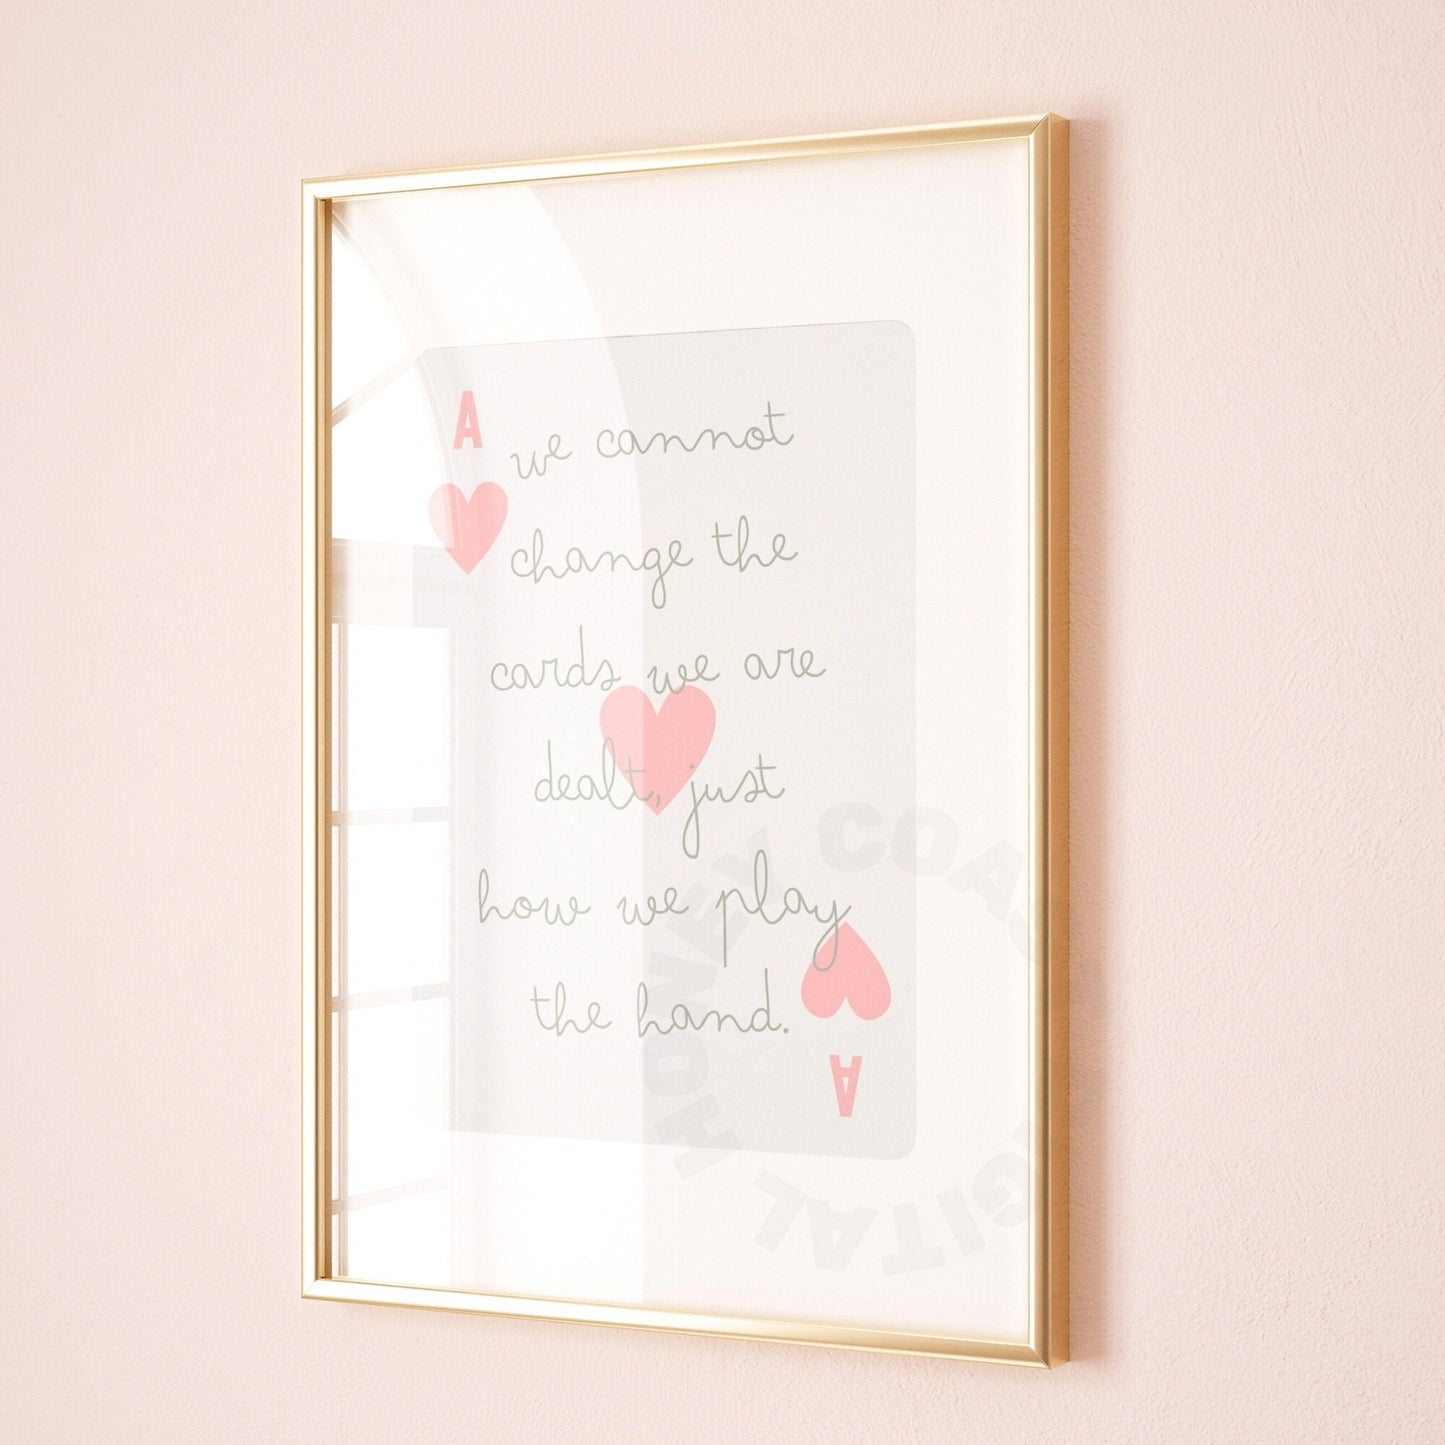 A
we cannot
change the
cards we are
dealt, just
how we play
the hand.
A
HONEY COAST DIGITAL